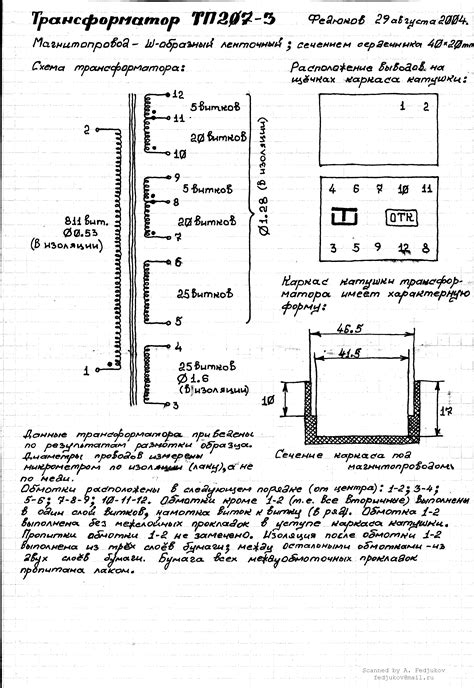 Трансформатор ТП207-3 Федюков 29 августа 2004.
Магнитопровод - Ш-образный ленточный; сечением сердечника 40×20мм
Схема трансформатора:
Расположение выводов на
щёчках каркаса катушки:
12
5 витков
11
20 витков
10
9
5 витков
8
20 витков
7
6
25 витков
5
Ø1.28 (в изоляции)
4
25 витков
Ø1.6
(в изоляции)
3
2
811 вит.
Ø0.53
(в изоляции)
1
1 2
4 6 9 7 10 11
ОТК
3 5 9 12 8
Каркас катушки трансфор-
матора имеет характерную
форму:
46.5
41.5
10
17
Сечение каркаса под
магнитопроводом.
Данные трансформатора приведены
по результатам размотки образца.
Диаметры проводов измерены
микрометром по изоляции (лаку), а не
по меди.
Обмотки расположены в следующем порядке (от центра): 1-2; 3-4;
5-6; 7-8-9; 10-11-12. Обмотки кроме 1-2 (т.е. все вторичные) выполнены
в один слой витков, намотка виток к витку (в ряд). Обмотка 1-2
выполнена без межслойных прокладок в уступе каркаса катушки.
Пропитки обмотки 1-2 не замечено. Изоляция после обмотки 1-2
выполнена из трёх слоёв бумаги; между остальными обмотками - из
двух слоёв бумаги. Бумага всех междуобмоточных прокладок
пропитана лаком.
Scanned by A. Fedjukov
fedjukov@mail.ru